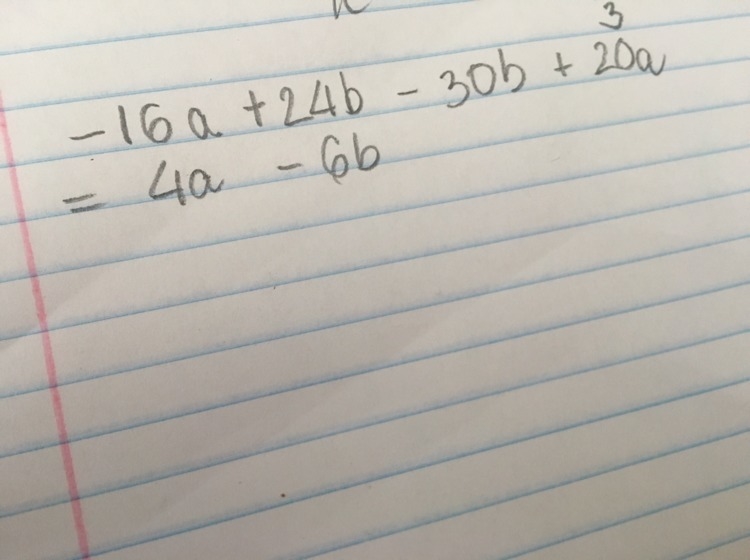 3
-16a + 24b - 30b + 20a
= 4a - 6b